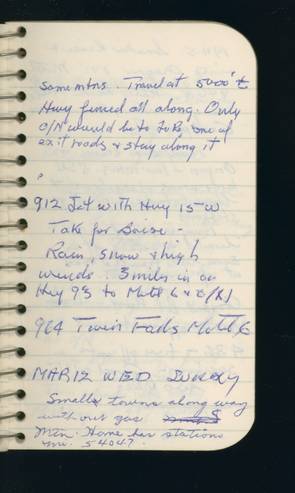 Some mtns. Travel at 5000' E
Hwy fenced all along. Only
O/N would be to take one of
exit roads & stay along it
912 Jct with Hwy 15 W
Take for Boise -
Rain, snow & high
winds. 3 miles in on
Hwy 93 to Motel 6
964 Twin Falls Motel 6
MAR 12 WED SUNNY
Small towns along way
without gas
Mtn. Home has stations
mi. 54047.